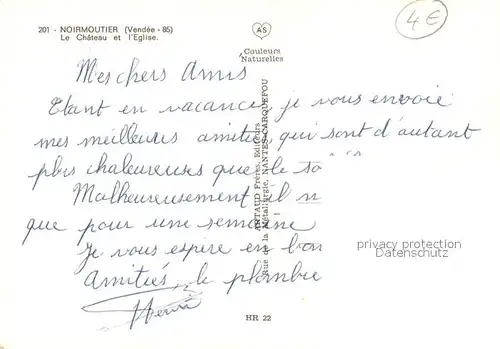 201 - NOIRMOUTIER (Vendée - 85)
Le Château et l'Eglise.
4€
AS
Couleurs
Naturelles
Mes chers Amis
Etant en vacances je vous envoie
mes meilleures amitiés qui sont d'autant
plus chaleureuses que le so
Malheureusement il n
que pour une semaine
Je vous espère en bon
Amitiés, le plombie
Henri
ARTAUD Frères, Editeurs
Rue de la Métallurgie, NANTES-CARQUEFOU
privacy protection
Datenschutz
HR 22